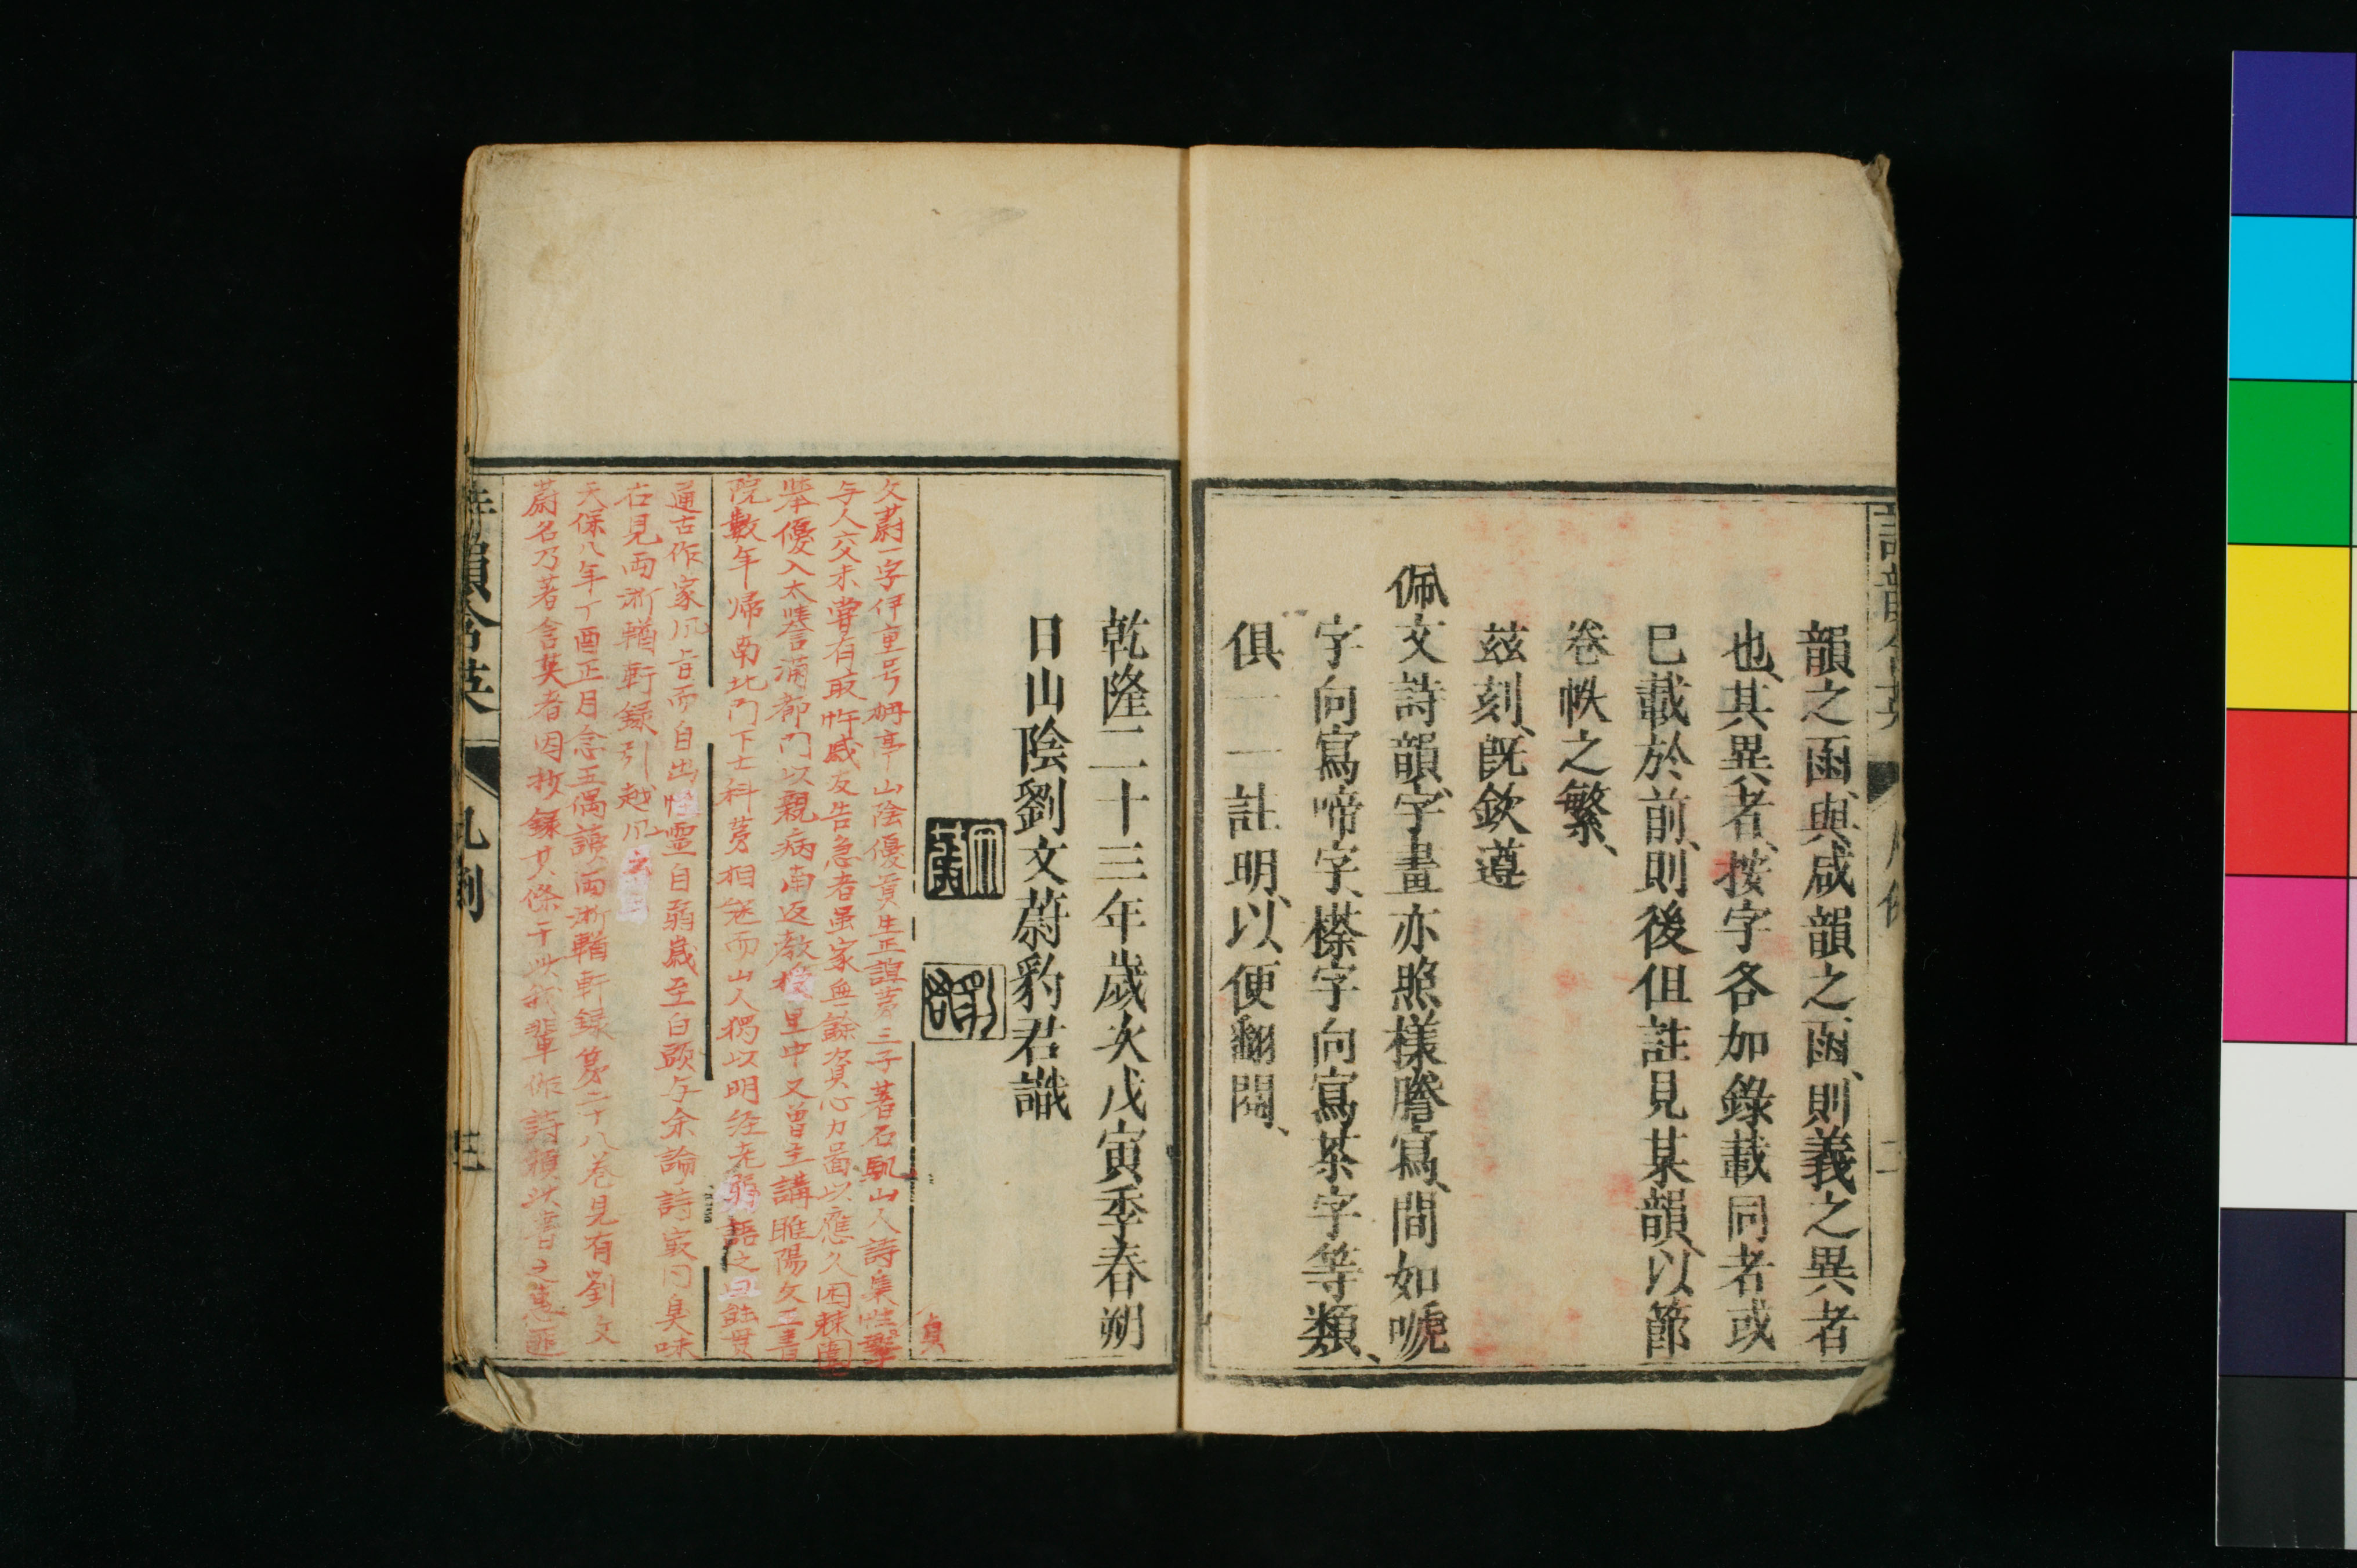 韻之函、與咸韻之函、則義之異者
也、其異者、按字各加錄載同者或
已載於前、則後但註見某韻、以節
卷帙之繁、
茲刻、旣欽遵
佩文詩韻、字畫亦照樣謄寫、間如嗁
字向寫啼字、㯡字向寫茶字等類、
俱一一註明、以便翻閱、
詩韻含英
凡例
二
乾隆二十三年歲次戊寅季春朔
日山陰劉文蔚豹君識
文蔚
豹君
文蔚一字伊重号栴亭山陰優貢生正誼弟三子著石帆山人詩集性摯
貞
与人六父未嘗有取忤戚友告急者虽家無餘資心力畐以應久困棘闈
举優入太學言滿都門以親病南返教授里中又曾主講睢陽文正書
院數年帰南北門下士科第相継而山人獨以明経老翦語之
通古作家凡旨而自出性霊自弱歳至白頭与余論詩寂同臭味
右見両浙輶軒録引越风云
天保八年丁酉正月念五偶讀両浙輶軒録第二十八巻見有劉文
蔚名乃著含英者因抄録其條于此我輩作詩頼此書之惠匪
詩韻含英
凡例
三